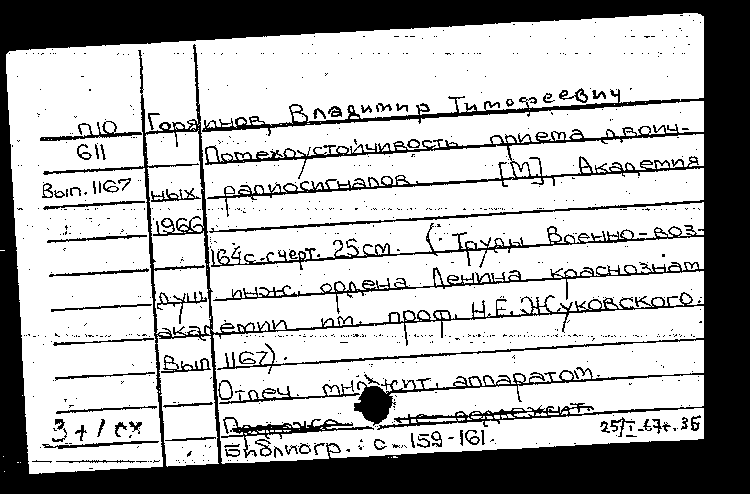 П10 Горяинов, Владимир Тимофеевич.
611 Потехоустойчивость приема двоич-
Вып. 1167 ных радиосигналов. [М], Академия
1966.
164с.счерт. 25см. (Труды Военно-воз-
душ инж. ордена Ленина краснознам
академии им. проф. Н.Е. Жуковского.
Вып 1167).
Отпеч. множит. аппаратом.
Продаже не подлежит.
3 + 1 сх Библиогр.: с. 159-161. 25/I-67г. 35